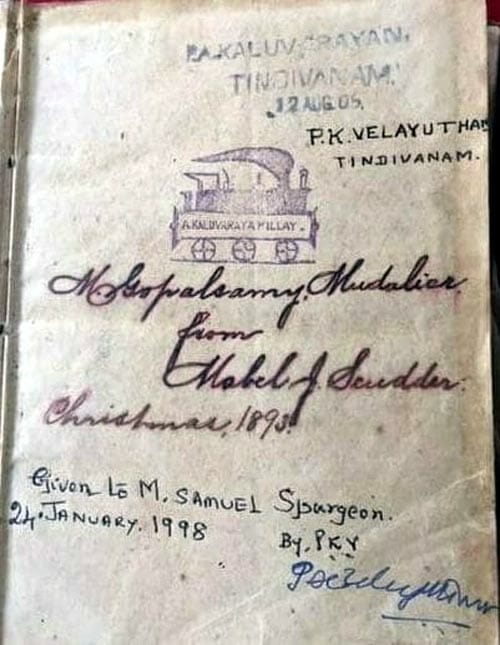 P.A.KALUVARAYAN,
TINDIVANAM.
12 AUG 05.
P.K.VELAYUTHAN
TINDIVANAM.
A.KALUVARAYA PILLAY.
M Gopalsamy Mudalier
from
Mabel J. Scudder.
Christmas, 1893
Given to M. SAMUEL Spurgeon.
24.JANUARY.1998
By, PKV